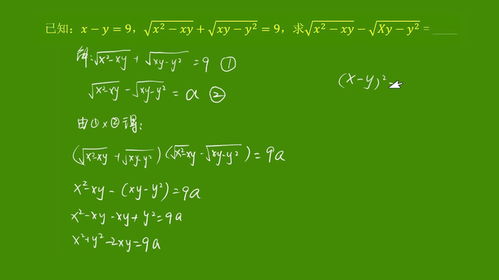 已知：x − y = 9，√(x² − xy) + √(xy − y²) = 9，求√(x² − xy) − √(Xy − y²) = ____
解：√(x²-xy) + √(xy-y²) = 9 ①
√(x²-xy) - √(xy-y²) = a ②
(x-y)²=
由①×②得：
(√(x²-xy) + √(xy-y²))(√(x²-xy) - √(xy-y²)) = 9a
x²-xy - (xy-y²) = 9a
x²-xy-xy+y² = 9a
x²+y²-2xy=9a